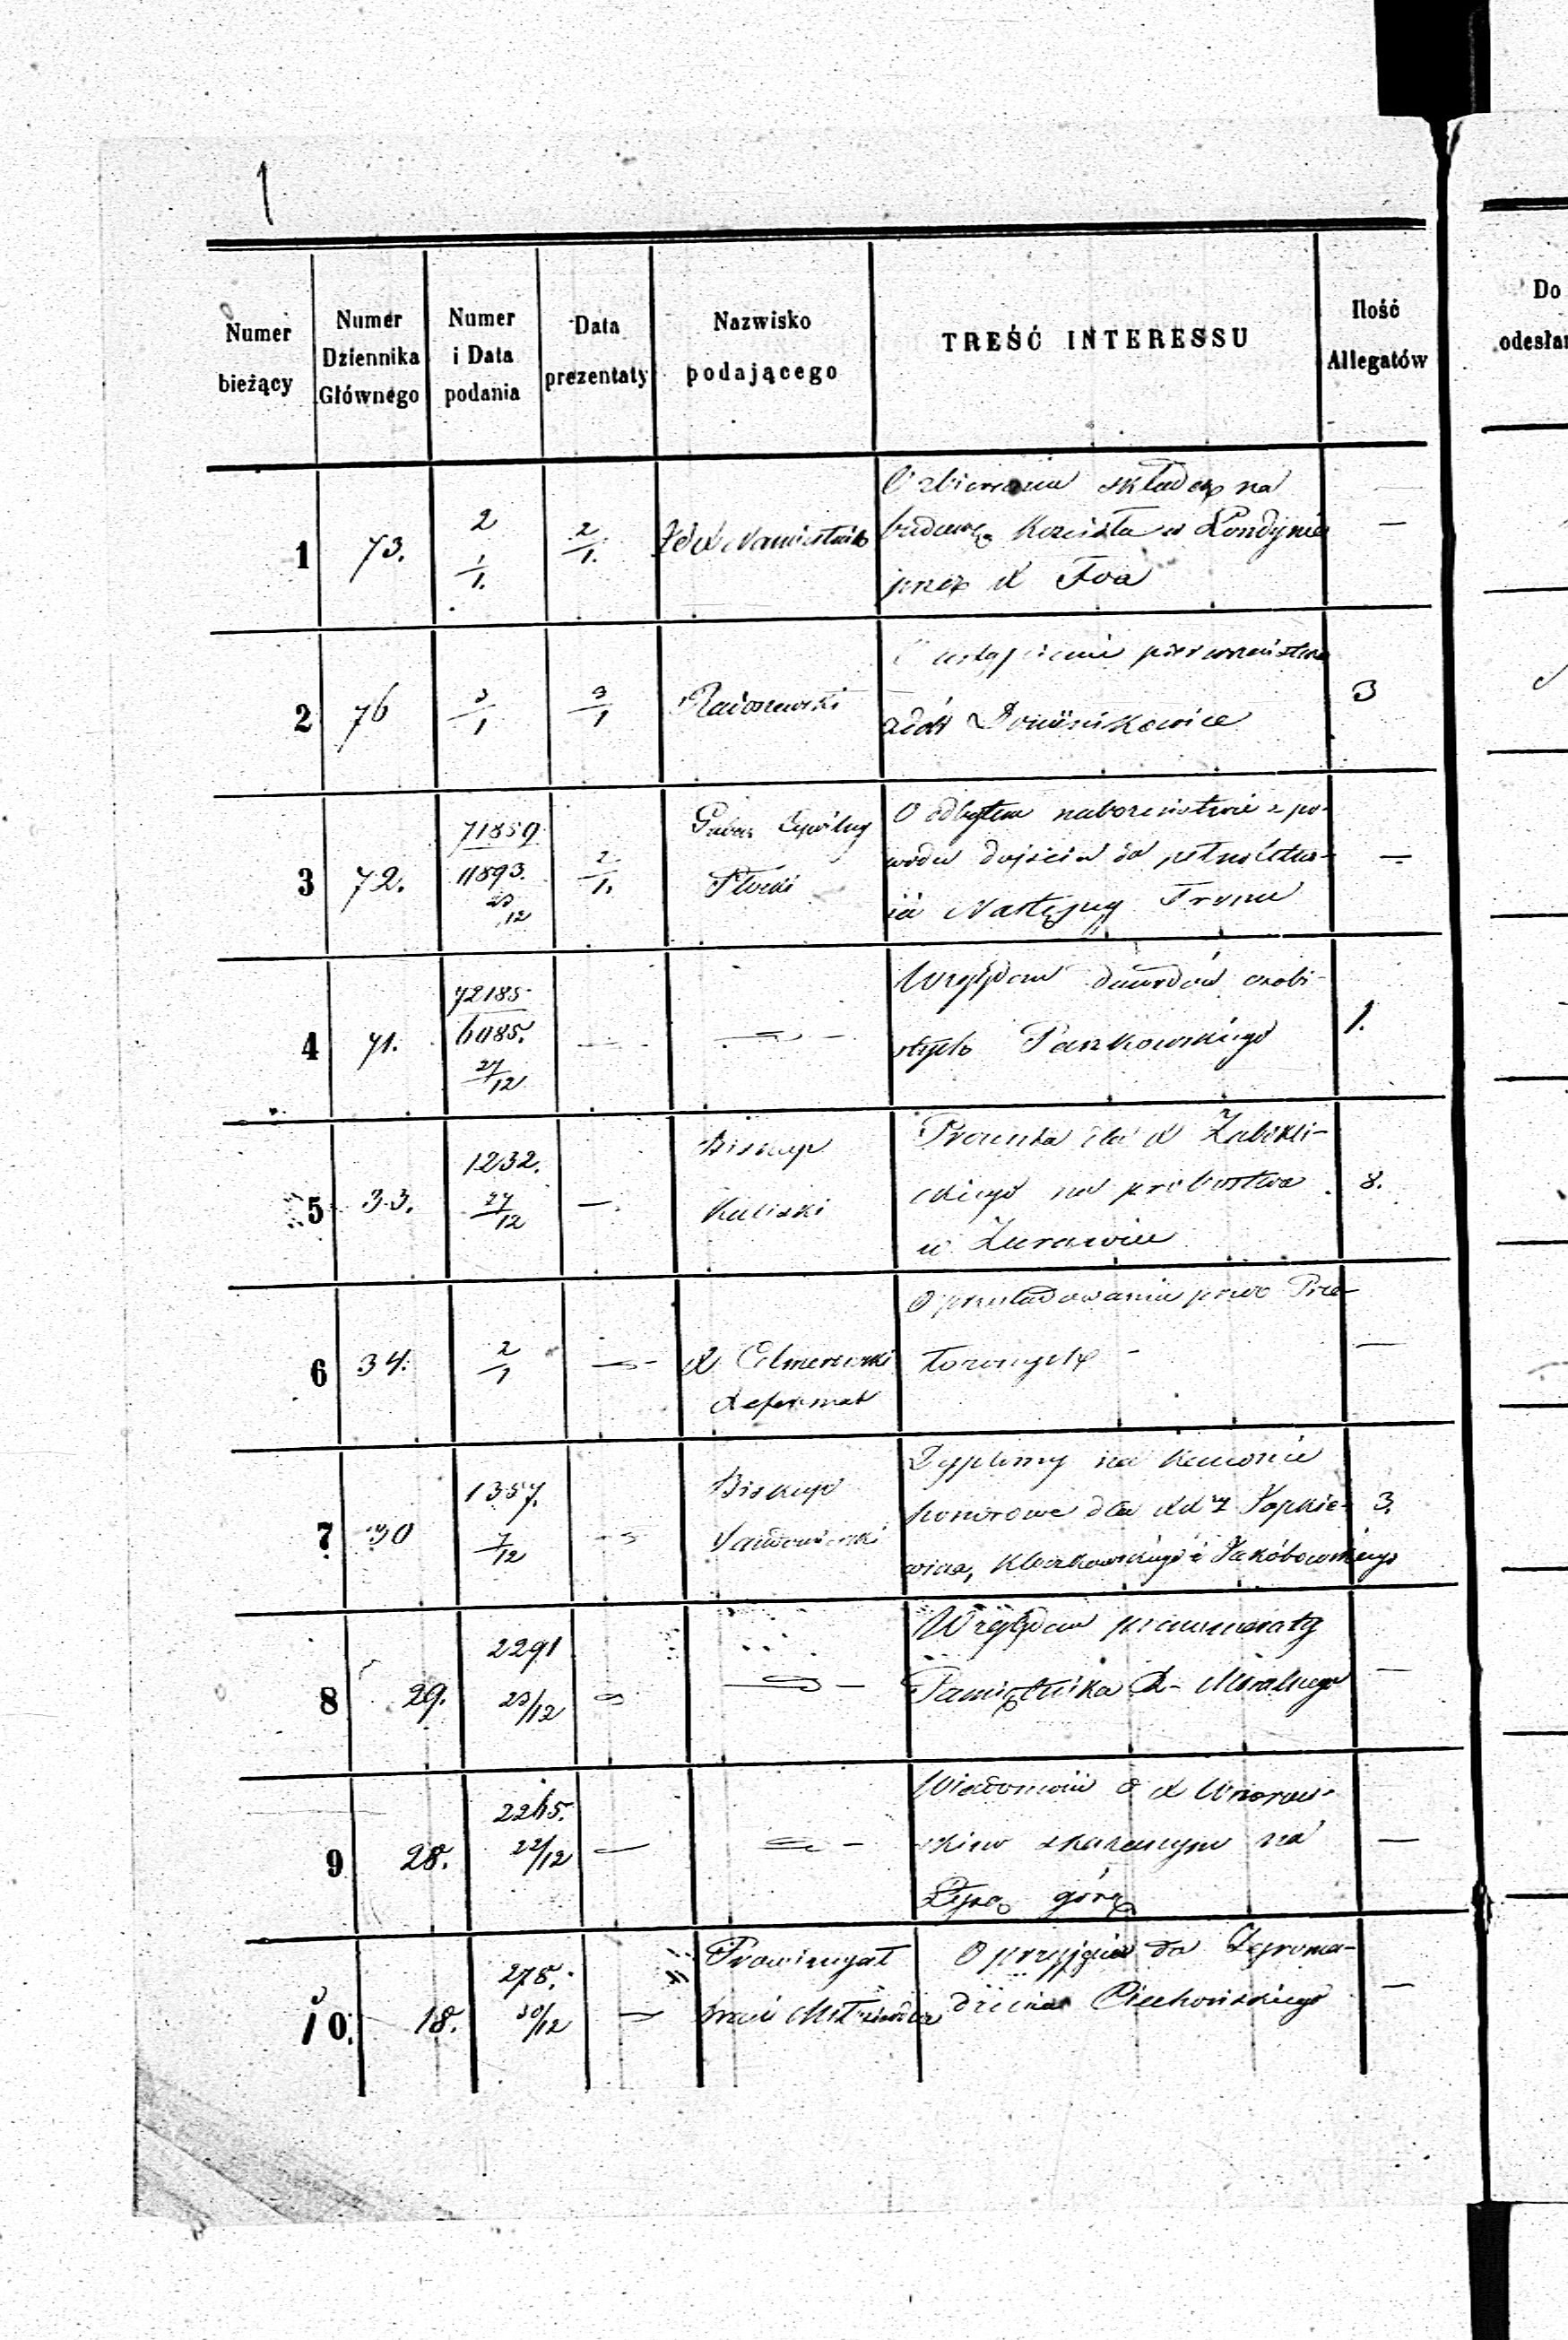 1
Numer bieżący
Numer Dziennika Głównego
Numer i Data podania
Data prezentaty
Nazwisko podającego
TREŚĆ INTERESSU
Ilość Allegatów
Do
odesła
1 73. 2 1/1. 2/1. Namiestnik
O zbieraniu składek na
budowę Kościoła w Londynie
przez X Fva
—
2 76 3/1 3/1 Radoszewski
ustąpienie pierwszeństwa
dóbr Dominikowice
3
3 72. 71859 11893. 23/12 2/1. Guber. Cywilny
Płocki
O odbytem nabożeństwie z po-
wodu dojścia do pełnoletno-
ia Następcy Tronu
—
4 71. 72185 6085. 27/12 — —
Względem dowodów osobi-
stych Paszkowskiego
1.
5 33. 1232. 27/12 — Biskup
Kaliski
Prezenta dla X
na probostwo
w Żurawiu
8.
6 34. 2/1 — X
Reformat
O prześladowaniu przez Prze-
łożonych —
—
7 30 1357. 7/12 — Biskup
Sandomierski
Dyplomy na kanonie
honorowe dla XXz Popkie-
wicza, Kloczkowskiego i Jakóbowskiego
3.
8 29. 2291 23/12 — —
Względem prenumeraty
Pamiętnika R. Moralnego
—
9 28. 2265. 22/12 — —
Wiadomość o X Wnorow-
skim skazanym na
Łysą górę
—
10. 18. 278. 30/12 — Prowincyał
braci Miłosierdzia
O przyjęcie do Zgroma-
dzenia Piechowskiego
—